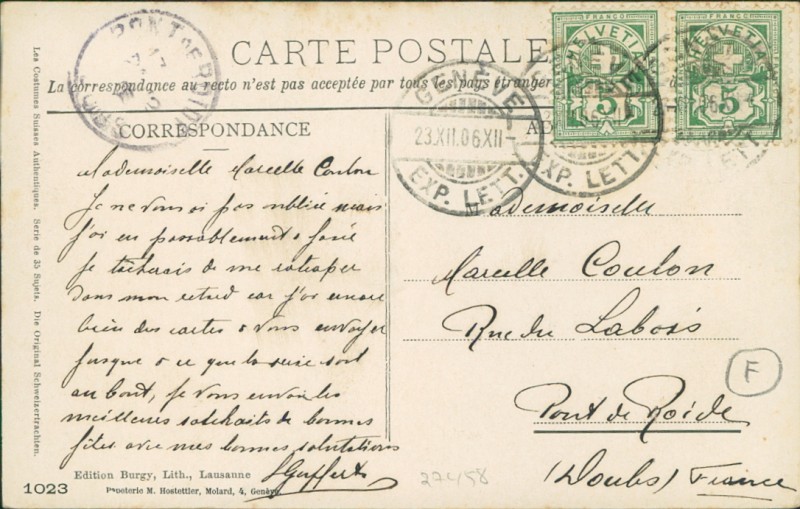 CARTE POSTALE
La correspondance au recto n'est pas acceptée par tous les pays étranger
CORRESPONDANCE
Mademoiselle Marcelle Coulon
Je ne vous ai pas oublié mais
j'ai eu passablement à faire
Je tacherais de me ratraper
dans mon retard car j'ai encore
bien des cartes à vous envoyer
jusque à ce que la serie soit
au bout, je vous envoie les
meilleures souhaits de bonnes
fêtes avec mes bonnes salutations
Edition Burgy, Lith., Lausanne
1023
Papeterie M. Hostettler, Molard, 4, Genève
Les Costumes Suisses Authentiques. Serie de 35 Sujets. Die Original Schweizertrachten.
HELVETIA
FRANCO
5
HELVETIA
FRANCO
5
GENÈVE
23.XII.06 XII-
EXP. LETT.
EXP. LETT.
Mademoiselle
Marcelle Coulon
Rue du Labois
Pont de Roide
(Doubs) France
F
274/58